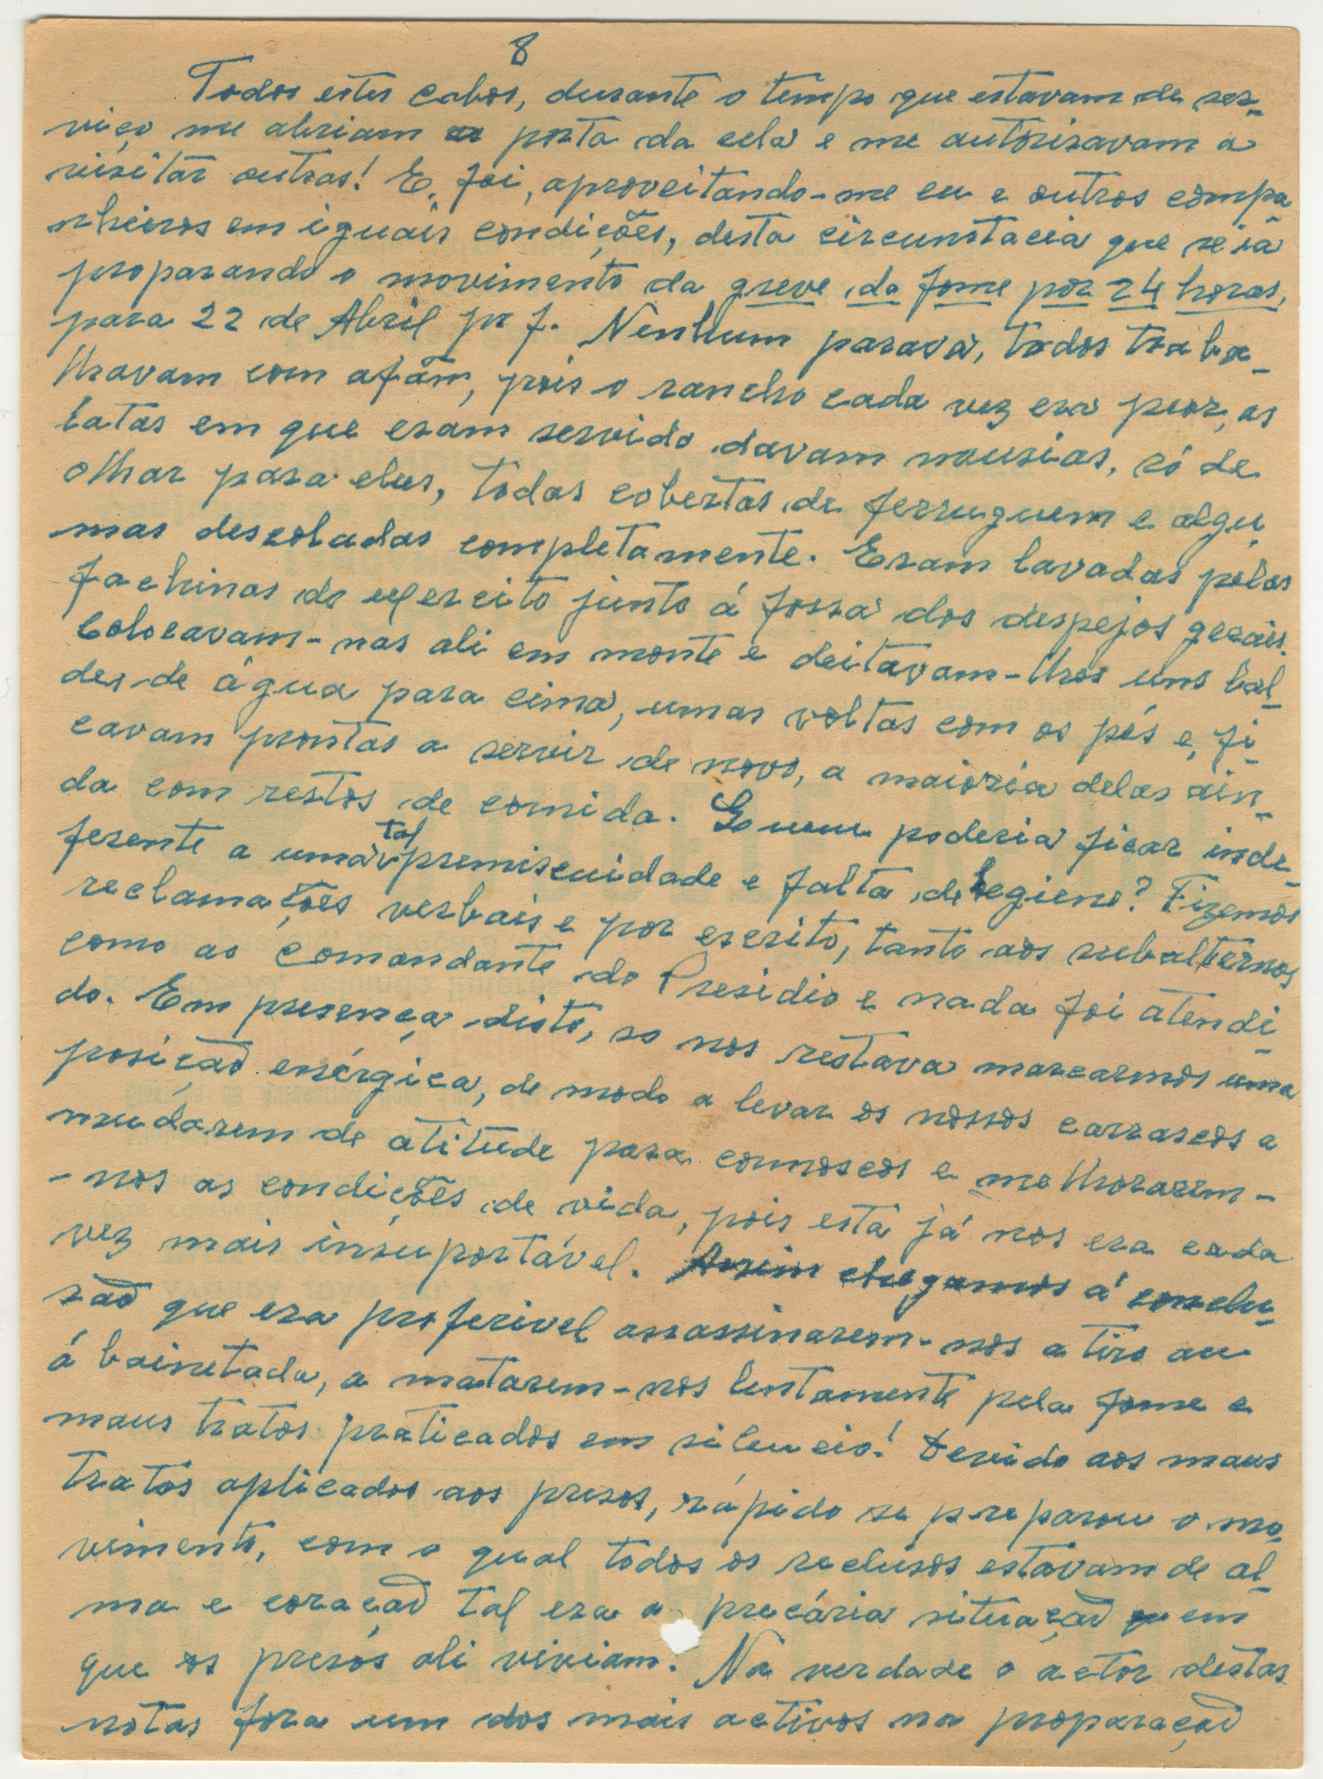 8
Todos estes cabos, durante o tempo que estavam de ser-
viço me abriam a porta da cela e me autorisavam a
visitar outras! E, foi, aproveitando-me eu e outros compa-
nheiros em iguais condições, desta circunstacia que se ia
proparando o movimento da greve da fome por 24 horas,
para 22 de Abril p. f. Nenhum parava, todos traba-
lhavam com afãm, pois o rancho cada vez era peor, as
latas em que eram servido davam nousias, só de
olhar para elas, todas cobertas de ferruguem e algu-
mas descoladas completamente. Eram lavadas pelos
fachinas do exercito junto á fossa dos despejos gerais.
Colocavam-nas ali em monte e deitavam-lhos uns bal-
des de água para cima, umas voltas com os pés e, fi-
cavam prontas a servir de novo, a maioria delas ain-
da com restos de comida. Quem poderia ficar inde-
ferente a uma tal premiscuidade e falta de hegiene? Fizemos
reclamações verbais e por escrito, tanto aos subalternos
como ao comandante do Presidio e nada foi atendi-
do. Em presença disto, so nos restava marcarmos uma
posição enérgica, de modo a levar os nossos carrascos a
mudarem de atitude para connoscos e melhorarem-
-nos as condições de vida, pois esta já nos era cada
vez mais insuportável. Assim chegamos á conclu-
são que era proferivel assassinarem-nos a tiro ou
á bainetada, a matarem-nos lentamente pela fome e
maus tratos praticados em silencio! Devido aos maus
tratos aplicados aos presos, rápido se preparou o mo-
vimento, com o qual todos os reclusos estavam de al-
ma e coração tal era a precária situação em
que os presos ali viviam. Na verdade o actor destas
notas fora um dos mais activos na proparação